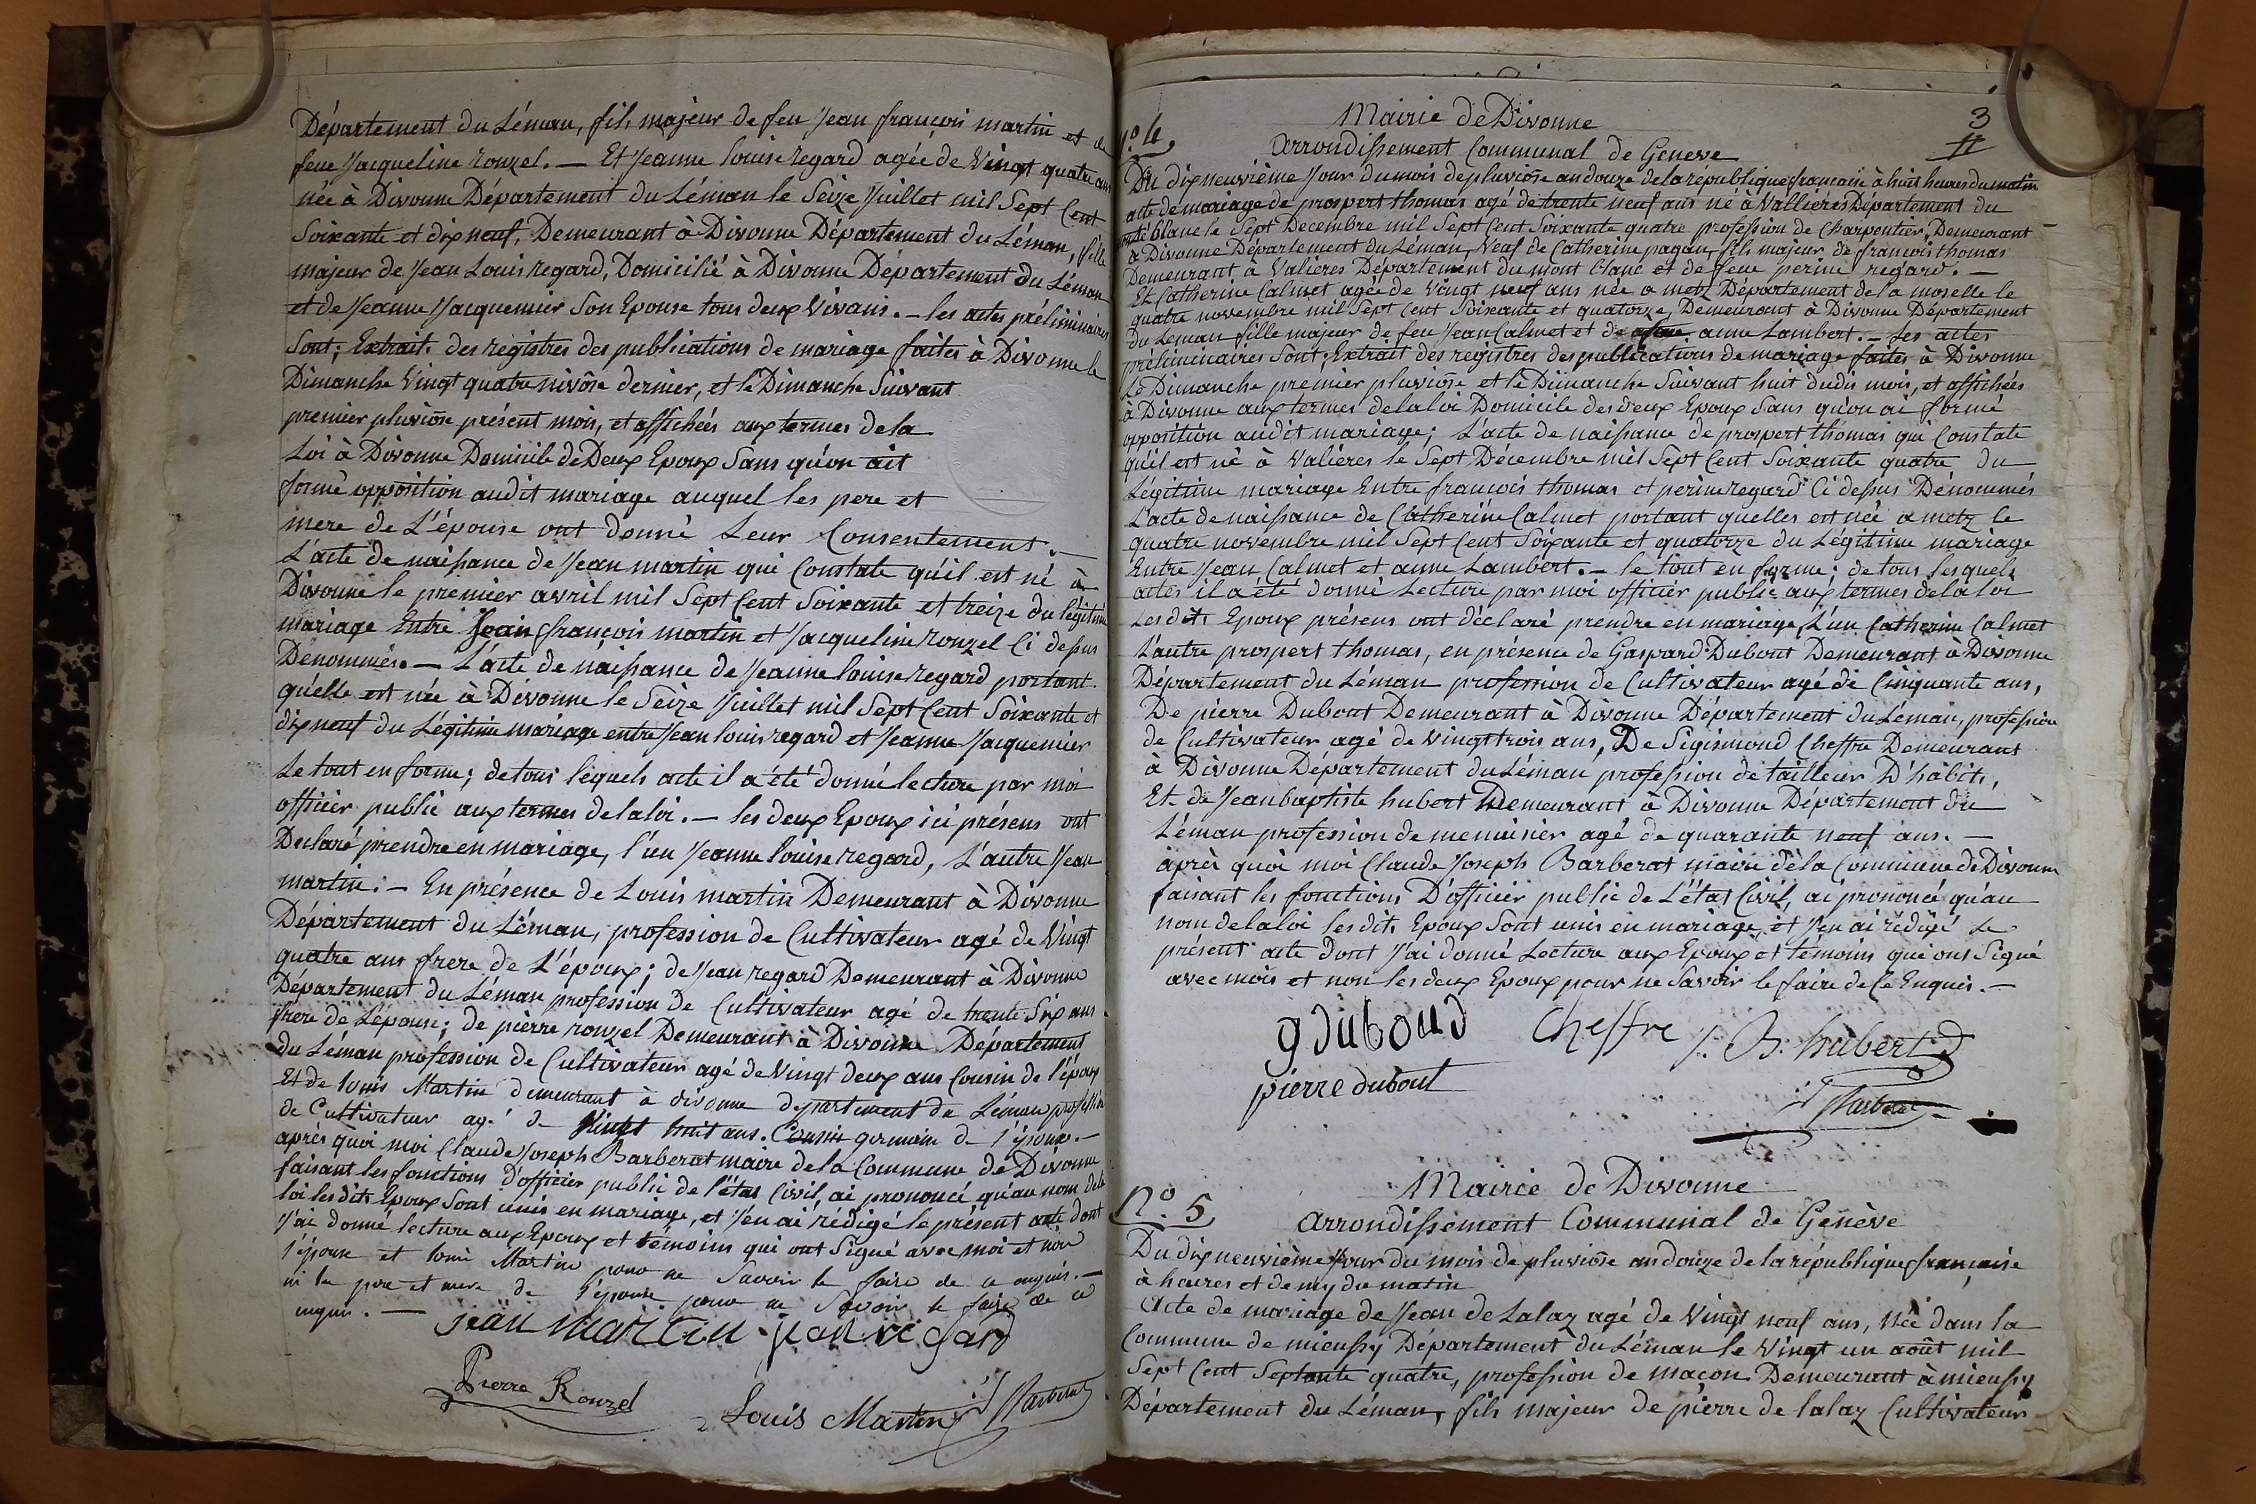 Département du Léman, fils majeur de feu Jean françois martin et de
feue Jacqueline rouzel. — Et Jeanne louise regard agée de Vingt quatre ans
née à Divonne Département du Léman le Seize Juillet mil Sept Cent
Soixante et dix neuf, Demeurant à Divonne Département du Léman, fille
majeur de Jean Louis regard, Domicilié à Divonne Département du Léman
et de Jeanne Jacquemier Son Epouse tous deux Vivans. — les actes préliminaires
Sont; Extrait des registres des publications de mariage faites à Divonne le
Dimanche Vingt quatre nivôse dernier, et le Dimanche Suivant
premier pluviôse présent mois, et affichées aux termes de la
Loi à Divonne Domicile de Deux Epoux Sans qu'on ait
formé opposition audit mariage auquel les pere et
mere de L'épouse ont donné Leur Consentement. —
L'acte de naissance de Jean martin qui Constate qu'il est né à
Divonne le premier avril mil Sept Cent Soixante et treize du légitime
mariage Entre Jean françois martin et Jacqueline rouzel Ci dessus
Dénommés. — L'acte de naissance de Jeanne louise regard portant
qu'elle est née à Divonne le Seize Juillet mil Sept Cent Soixante et
dix neuf du Légitime mariage entre Jean louis regard et Jeanne Jacquemier
Le tout en forme; de tous lequels acte il a été donné lecture par moi
officier public aux termes de la loi. — les deux Epoux ici présens ont
Declaré prendre en mariage, l'un Jeanne louise regard, L'autre Jean
martin. — En présence de Louis martin Demeurant à Divonne
Département du Léman, profession de Cultivateur agé de Vingt
quatre ans frere de L'époux; de Jean regard Demeurant à Divonne
Département du Léman profession de Cultivateur agé de trente Six ans
frere de L'épouse; de pierre rouzel Demeurant à Divonne Département
du Léman profession de Cultivateur agé de Vingt deux ans Cousin de l'époux
Et de louis Martin demeurant à divonne departement du Léman profession
de Cultivateur agé de Vingt huit ans. Cousin germain de l'époux. —
après quoi moi Claude Joseph Barberat maire de la Commune de Divonne
faisant les fonctions D'officier public de l'état Civil, ai prononcé qu'au nom de la
loi les dits Epoux Sont unis en mariage, et J'en ai rédigé le présent acte dont
J'ai donné lecture aux Epoux et témoins qui ont Signé avec moi et non
l'épouse et louis Martin pour ne Savoir le faire de ce enquis. —
ni les pere et mere de l'épouse pour ne Savoir le faire de ce
enquis. —
jean martin jean regard
Pierre Rouzel
Louis Martin Barberat
3
Mairie de Divonne
n.o 4
Arrondissement Communal de Geneve
Du dix neuvième Jour du mois de pluviôse an douze de la république française à huit heures du matin
acte de mariage de prospert thomas agé de trente neuf ans né à Vallieres Département du
mont blanc le Sept Decembre mil Sept Cent Soixante quatre profession de Charpentier, Demeurant
à Divonne Département du Léman, Veuf de Catherine pagan, fils majeur de françois thomas
Demeurant à Valieres Département du mont blanc et de feue perine regard. —
Et Catherine Calmet agée de Vingt neuf ans née a metz Département de la moselle le
quatre novembre mil Sept Cent Soixante et quatorze, Demeurant à Divonne Département
du Leman fille majeur de feu Jean Calmet et de anne Lambert. — Les actes
préliminaires Sont; Extrait des registres des publications de mariage faites à Divonne
Le Dimanche premier pluviôse et le Dimanche Suivant huit dudit mois, et affichées
à Divonne aux termes de la loi Domicile des deux Epoux Sans qu'on ai formé
opposition audit mariage; L'acte de naissance de prospert thomas qui Constate
qu'il est né à Valieres le Sept Décembre mil Sept Cent Soixante quatre du
Légitime mariage Entre francois thomas et perine regard Ci dessus Dénommés
L'acte de naissance de Catherine Calmet portant quelles est née a metz le
quatre novembre mil Sept Cent Soixante et quatorze du Légitime mariage
Entre Jean Calmet et anne Lambert. — le tout en forme; de tous lesquels
actes il a été donné Lecture par moi officier public aux termes de la loi
Les dits Epoux présens ont déclaré prendre en mariage, L'un Catherine Calmet
L'autre prospert thomas, en présence de Gaspard Dubout Demeurant à Divonne
Département du Léman profession de Cultivateur agé de Cinquante ans,
De pierre Dubout Demeurant à Divonne Département du Léman, profession
de Cultivateur agé de Vingt trois ans, De Sigismond Cheffre Demeurant
à Divonne Département du Léman profession de tailleur D'habits,
Et de Jean baptiste hubert Demeurant à Divonne Département du
Léman profession de menuisier agé de quarante neuf ans. —
après quoi moi Claude Joseph Barberat maire de la Commune de Divonne
faisant les fonctions D'officier public de L'état Civil, ai prononcé qu'au
nom de la loi les dits Epoux Sont unis en mariage, et J'en ai rédigé Le
présent acte dont J'ai donné Lecture aux Epoux et témoins qui ont Signé
avec mois et non les deux Epoux pour ne Savoir le faire de Ce Enquis. —
g duboud Cheffre J. B. hubert
pierre dubout
Barberat
Mairie de Divonne
N.o 5
Arrondissement Communal de Genève
Du dix neuvième Jour du mois de pluviôse an douze de la république française
à heures et demy du matin
Acte de mariage de Jean de Lalaz agé de Vingt neuf ans, née dans la
Commune de mieussy Département du Léman le Vingt un août mil
Sept Cent Septante quatre, profession de maçon Demeurant à mieussy
Département du Léman, fils majeur de pierre de lalaz Cultivateur